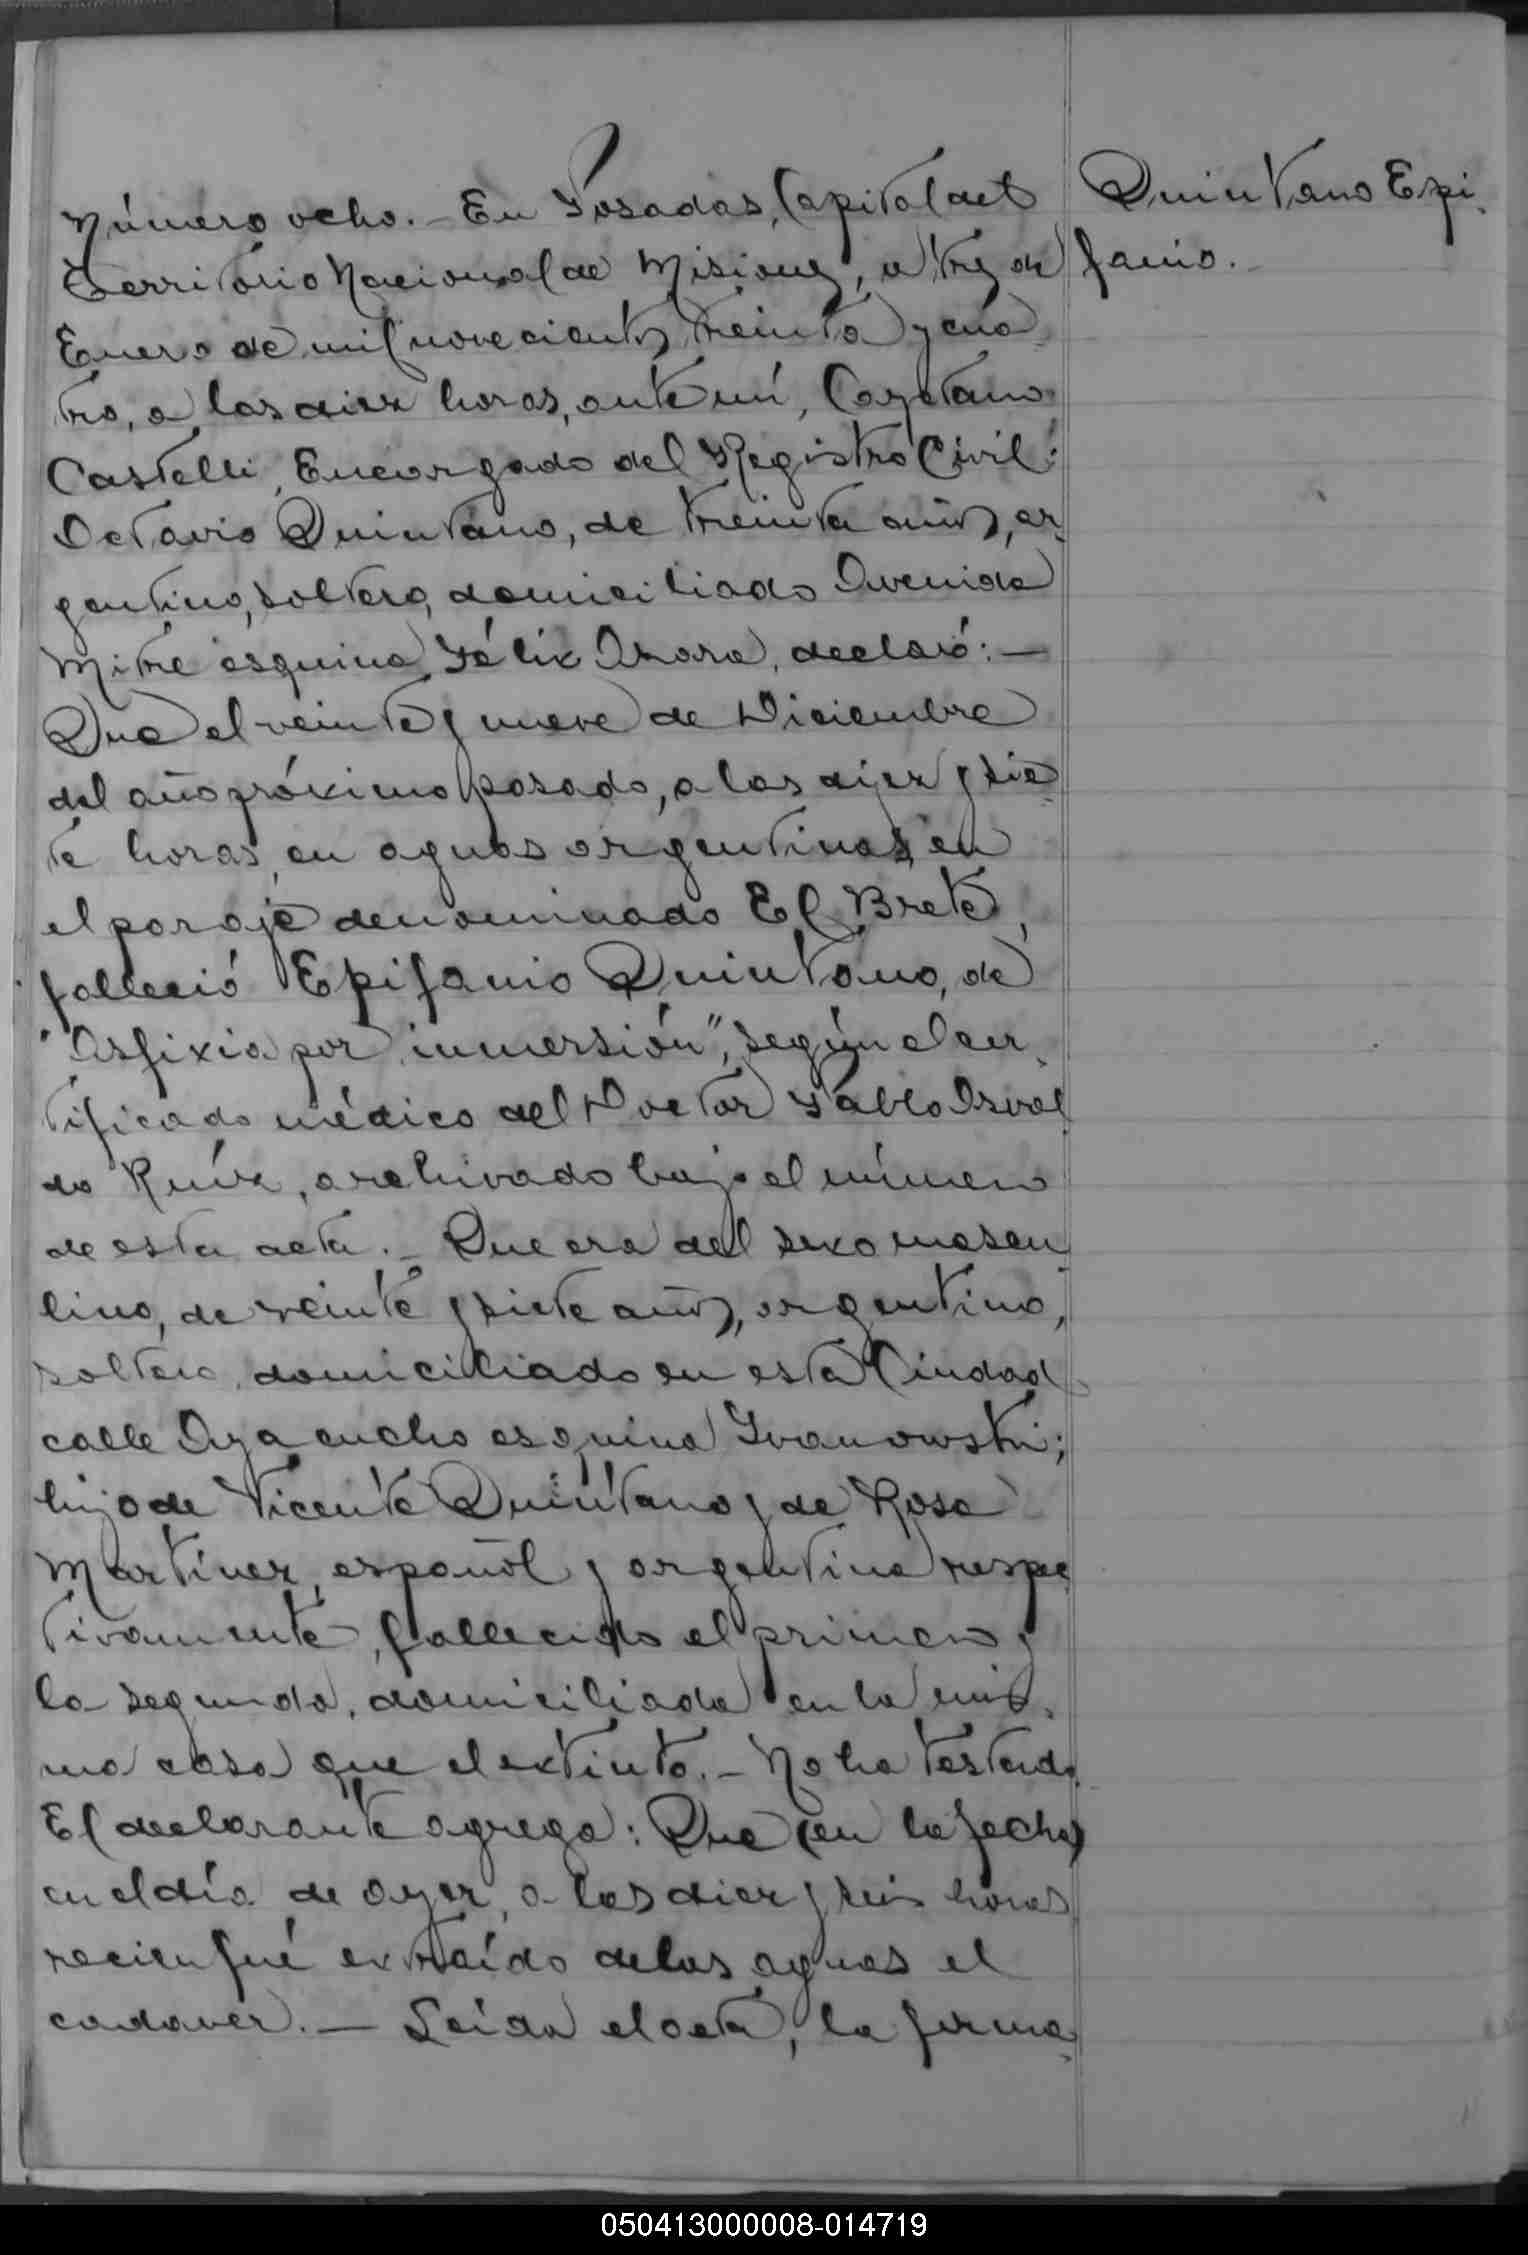 Número ocho.- En Posadas, Capital del
Territorio Nacional de Misiones, a tres de
Enero de mil novecientos treinta y cua-
tro, a las diez horas, ante mí, Cayetano
Castelli, Encargado del Registro Civil:
Octavio Quintana, de treinta años, ar-
gentino, soltero, domiciliado Avenida
Mitre esquina Félix Azara, declaró:—
Que el veinte y nueve de Diciembre
del año próximo pasado, a las diez y sie-
te horas, en aguas argentinas, en
el paraje denominado El Brete,
falleció Epifanio Quintana, de
"Asfixia por inmersión", según el cer-
tificado médico del Doctor Pablo Osval
do Ruíz, archivado bajo el número
de esta acta.- Que era del sexo mascu
lino, de veinte y siete años, argentino,
soltero, domiciliado en esta Ciudad
calle Ayacucho esquina Ivanowski;
hijo de Vicente Quintana y de Rosa
Martínez, español y argentina respec
tivamente, fallecido el primero y
la segunda, domiciliada en la mis-
ma casa que el extinto.- No ha testado.
El declarante agrega: Que (en la fecha)
en el día de ayer, a las diez y seis horas
recien fué extraído de las aguas el
cadaver.— Leída el acta, la firma-
Quintana Epi-
fanio.
050413000008-014719